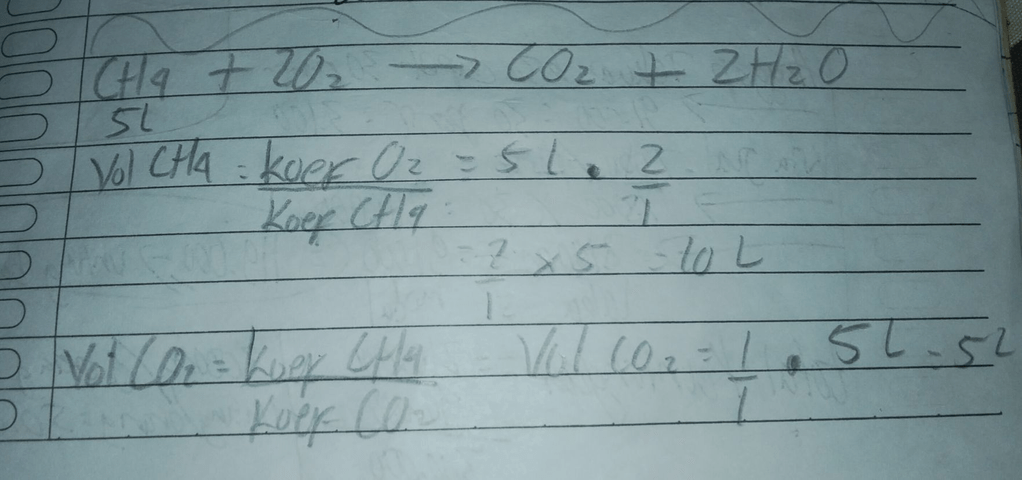 CH4 + 2O2 → CO2 + 2H2O
5L
Vol CH4 = koef O2 / koef CH4 = 5 L . 2/1
= 2/1 x 5 = 10 L
Vol CO2 = koef CH4 / koef CO2 - Vol CO2 = 1/1 . 5L = 5L